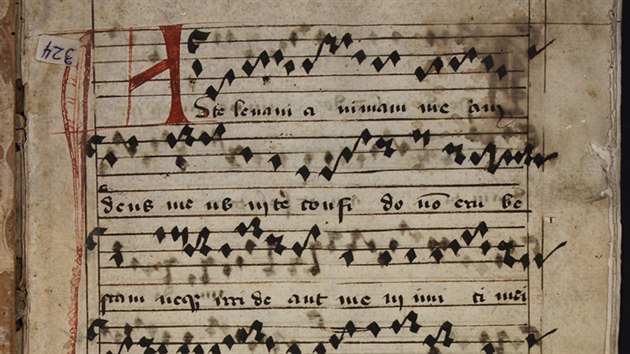 324
Ad te levavi a nimam me am
deus me us in te confi do nō eru be
scam neqȝ irri de ant me in imi ci mei